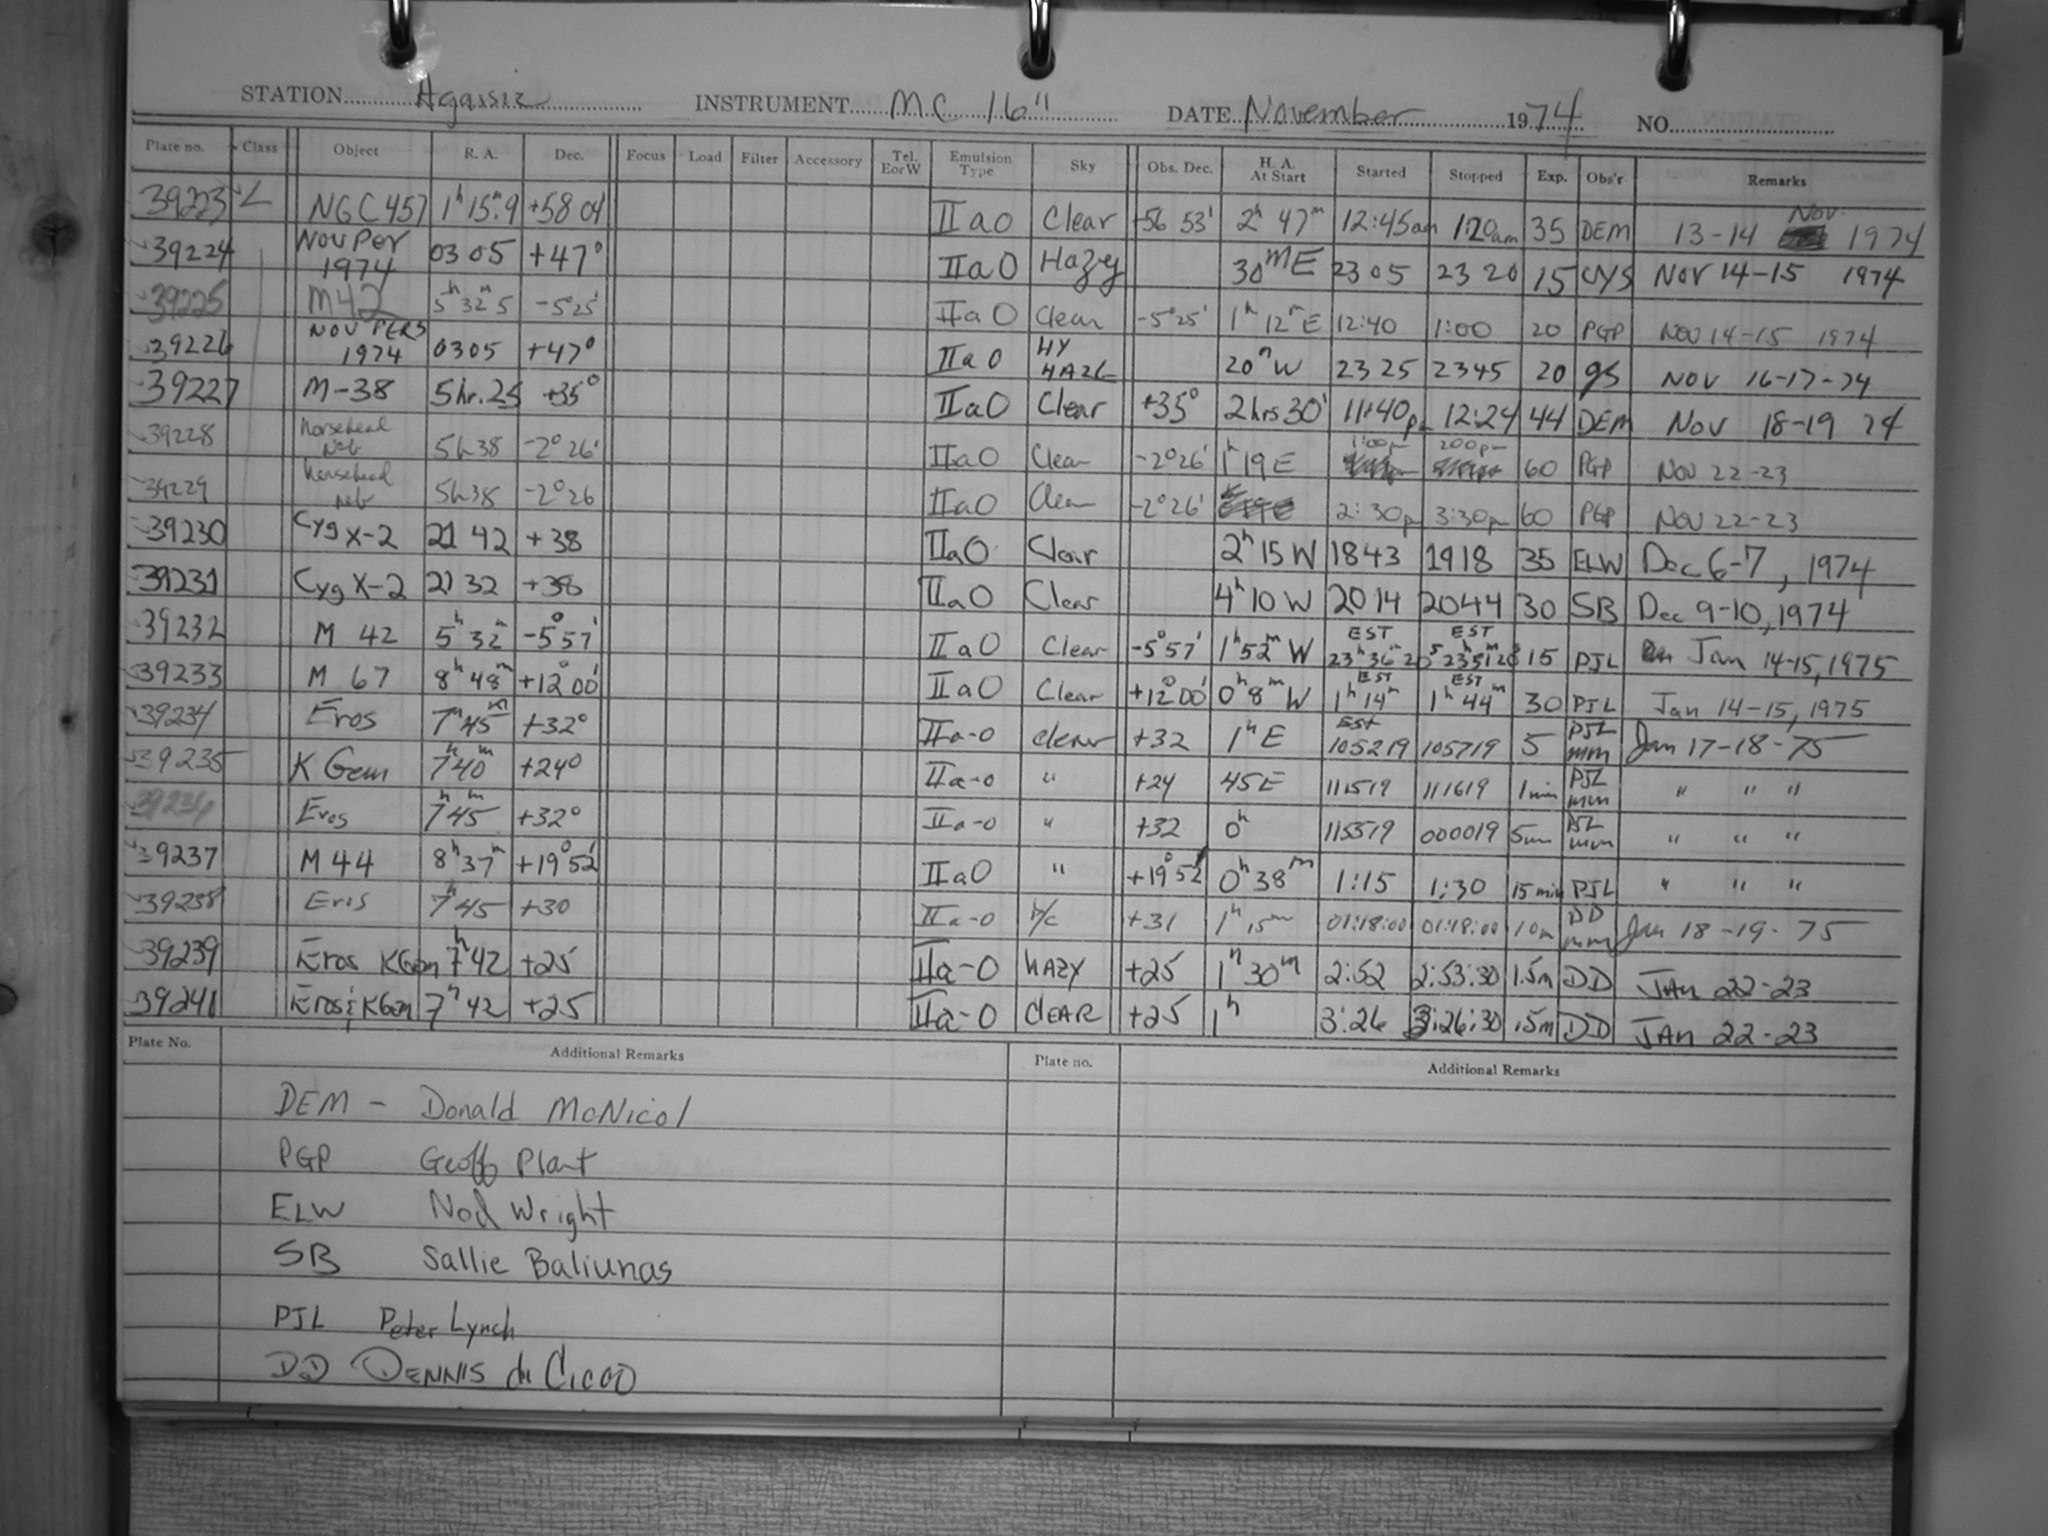 STATION Agassiz INSTRUMENT MC 16" DATE November 1974 NO.
Plate no. Class Object R. A. Dec. Focus Load Filter Accessory Tel. E or W Emulsion Type Sky Obs. Dec. H. A. At Start Started Stopped Exp. Obs'r Remarks
39223 L NGC 457 1h 15m.9 +58 04 IIaO Clear +56 53' 2h 47m 12:45am 1:20am 35 DEM 13-14 Nov 1974
39224 Nov Per 1974 03 05 +47° IIaO Hazy 30m E 23 05 23 20 15 CYS Nov 14-15 1974
39225 M42 5h 32m 5 -5°25' IIaO Clear -5°25' 1h 12m E 12:40 1:00 20 PGP Nov 14-15 1974
39226 NOV PERS 1974 0305 +47° IIaO HY HAZE 20m W 23 25 2345 20 gs NOV 16-17-74
39227 M-38 5hr.25 +35° IIaO Clear +35° 2hrs 30' 11:40p 12:24 44 DEM Nov 18-19 74
39228 horsehead neb 5h38 -2°26' IIaO Clear -2°26' 1h 19 E 1:00pm 200pm 60 PGP Nov 22-23
39229 horsehead neb 5h38 -2°26 IIaO Clear -2°26' 2:30p 3:30pm 60 PGP Nov 22-23
39230 Cyg X-2 21 42 +38 IIaO Clear 2h 15 W 1843 1918 35 ELW Dec 6-7, 1974
39231 Cyg X-2 21 32 +38 IIaO Clear 4h 10 W 2014 2044 30 SB Dec 9-10, 1974
39232 M 42 5h 32m -5°57' IIaO Clear -5°57' 1h 52m W EST 23h36m20s EST 23h51m20s 15 PJL Jan 14-15, 1975
39233 M 67 8h 48m +12°00' IIaO Clear +12°00' 0h 8m W EST 1h 14m EST 1h 44m 30 PJL Jan 14-15, 1975
39234 Eros 7h 45m +32° IIa-O clear +32 1h E EST 105219 105719 5 PJL mm Jan 17-18-75
39235 K Gem 7h 40m +24° IIa-O " +24 45E 111519 111619 1min PJL mm " " "
39236 Eros 7h 45m +32° IIa-O " +32 0h 115519 000019 5m PJL mm " " "
39237 M 44 8h 37m +19°52' IIaO " +19°52' 0h 38m 1:15 1:30 15 min PJL " " "
39238 Eros 7h 45 +30 IIa-O P/C +31 1h 15m 01:18:00 01:18:00 10m DD mm Jan 18-19-75
39239 Eros KGem 7h 42 +25 IIa-O HAZY +25 1h 30m 2:52 2:53:30 1.5m DD JAN 22-23
39241 Eros & KGem 7h 42 +25 IIa-O CLEAR +25 1h 3:26 3:26:30 .5m DD JAN 22-23
Plate No. Additional Remarks Plate no. Additional Remarks
DEM - Donald McNicol
PGP Geoff Plant
ELW Ned Wright
SB Sallie Baliunas
PJL Peter Lynch
DD DENNIS di CICCO